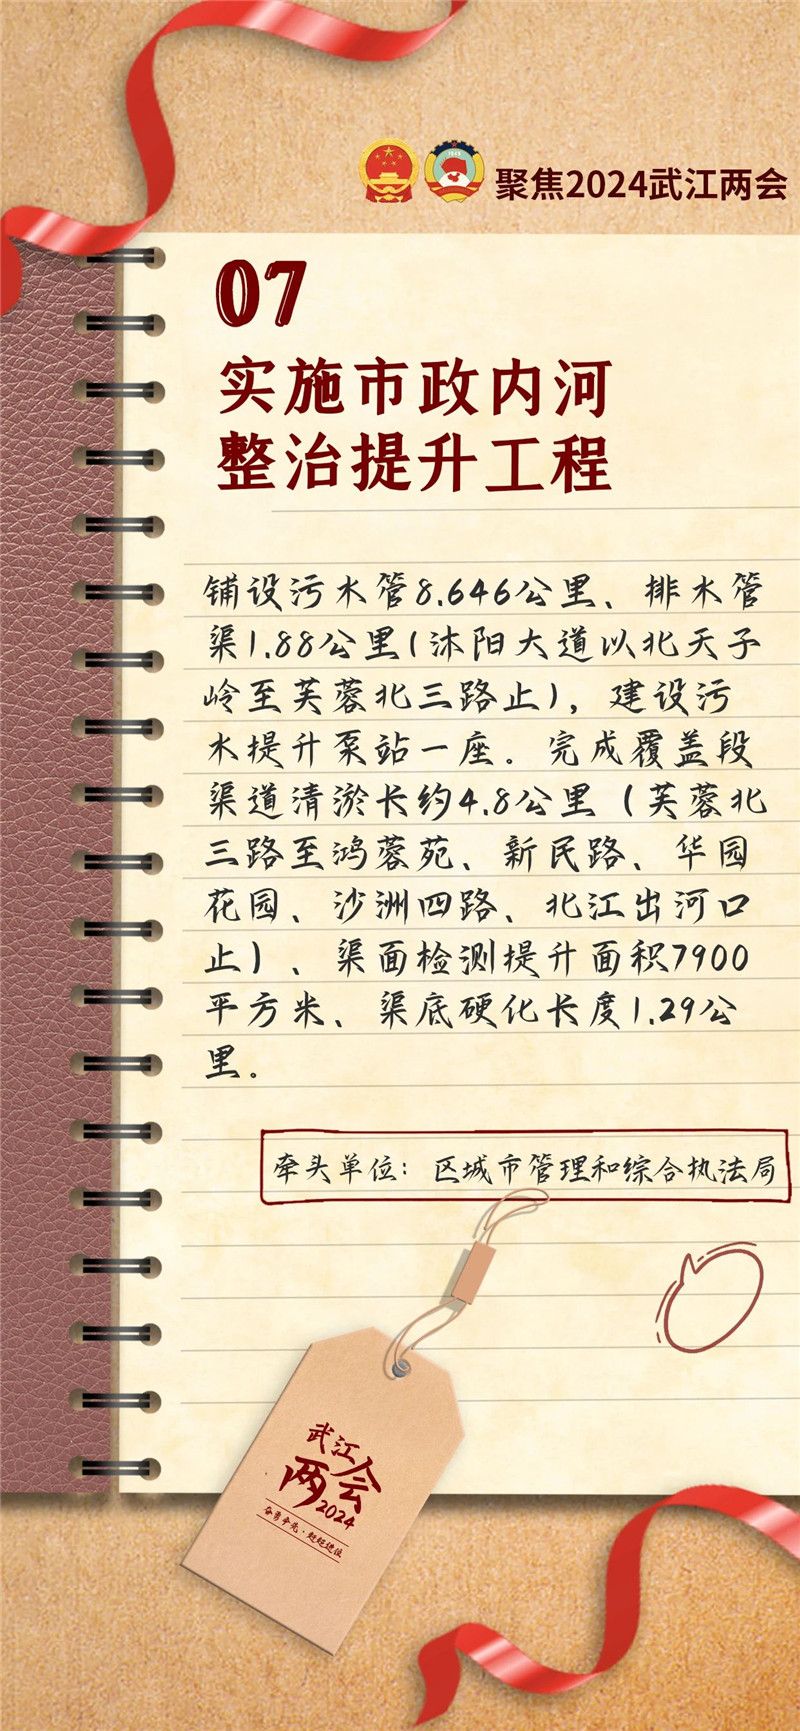 聚焦2024武江两会
07
实施市政内河
整治提升工程
铺设污水管8.646公里、排水管
渠1.88公里(沐阳大道以北天子
岭至芙蓉北三路止)，建设污
水提升泵站一座。完成覆盖段
渠道清淤长约4.8公里（芙蓉北
三路至鸿蓉苑、新民路、华园
花园、沙洲四路、北江出河口
止）、渠面检测提升面积7900
平方米、渠底硬化长度1.29公
里。
牵头单位：区城市管理和综合执法局
武江
两会
2024
奋勇争先·赶超进位